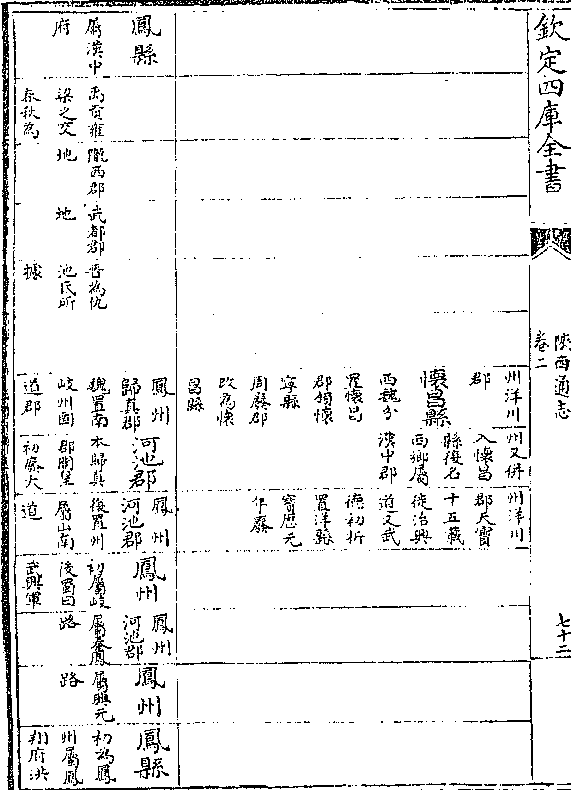 欽定四庫全書
陝西通志
卷二
七十二
州洋川
郡
懷昌縣
西魏分
置懷昌
郡領懷
寧縣
周廢郡
改為懷
昌縣
州又併
入懷昌
縣復名
西鄉屬
漢中郡
州洋川
郡天寶
十五載
徙治興
道又武
德初析
置洋縣
寶歴元
年廢
鳳縣
屬漢中
府
禹貢雍
梁之交
春秋為
隴西郡
地
武都郡
地
晉為仇
池氐所
據
鳳州
歸真郡
魏置南
岐州固
道郡
河池郡
本歸真
郡開皇
初廢大
鳳州
河池郡
後置州
屬山南
道
鳳州
初屬岐
後蜀曰
武興軍
鳳州
河池郡
屬秦鳳
路
鳳州
屬興元
路
鳳縣
初為鳳
州屬鳳
翔府洪